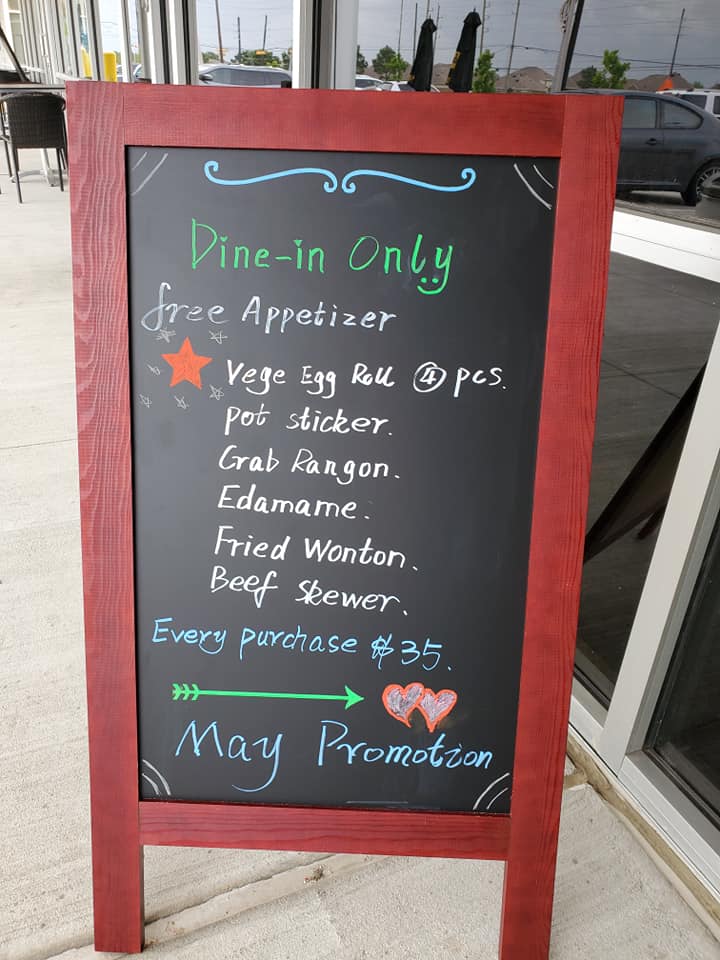 Dine-in Only
free Appetizer
Vege Egg Roll ④ pcs.
pot sticker.
Crab Rangon.
Edamame.
Fried Wonton.
Beef Skewer.
Every purchase $35.
May Promotion